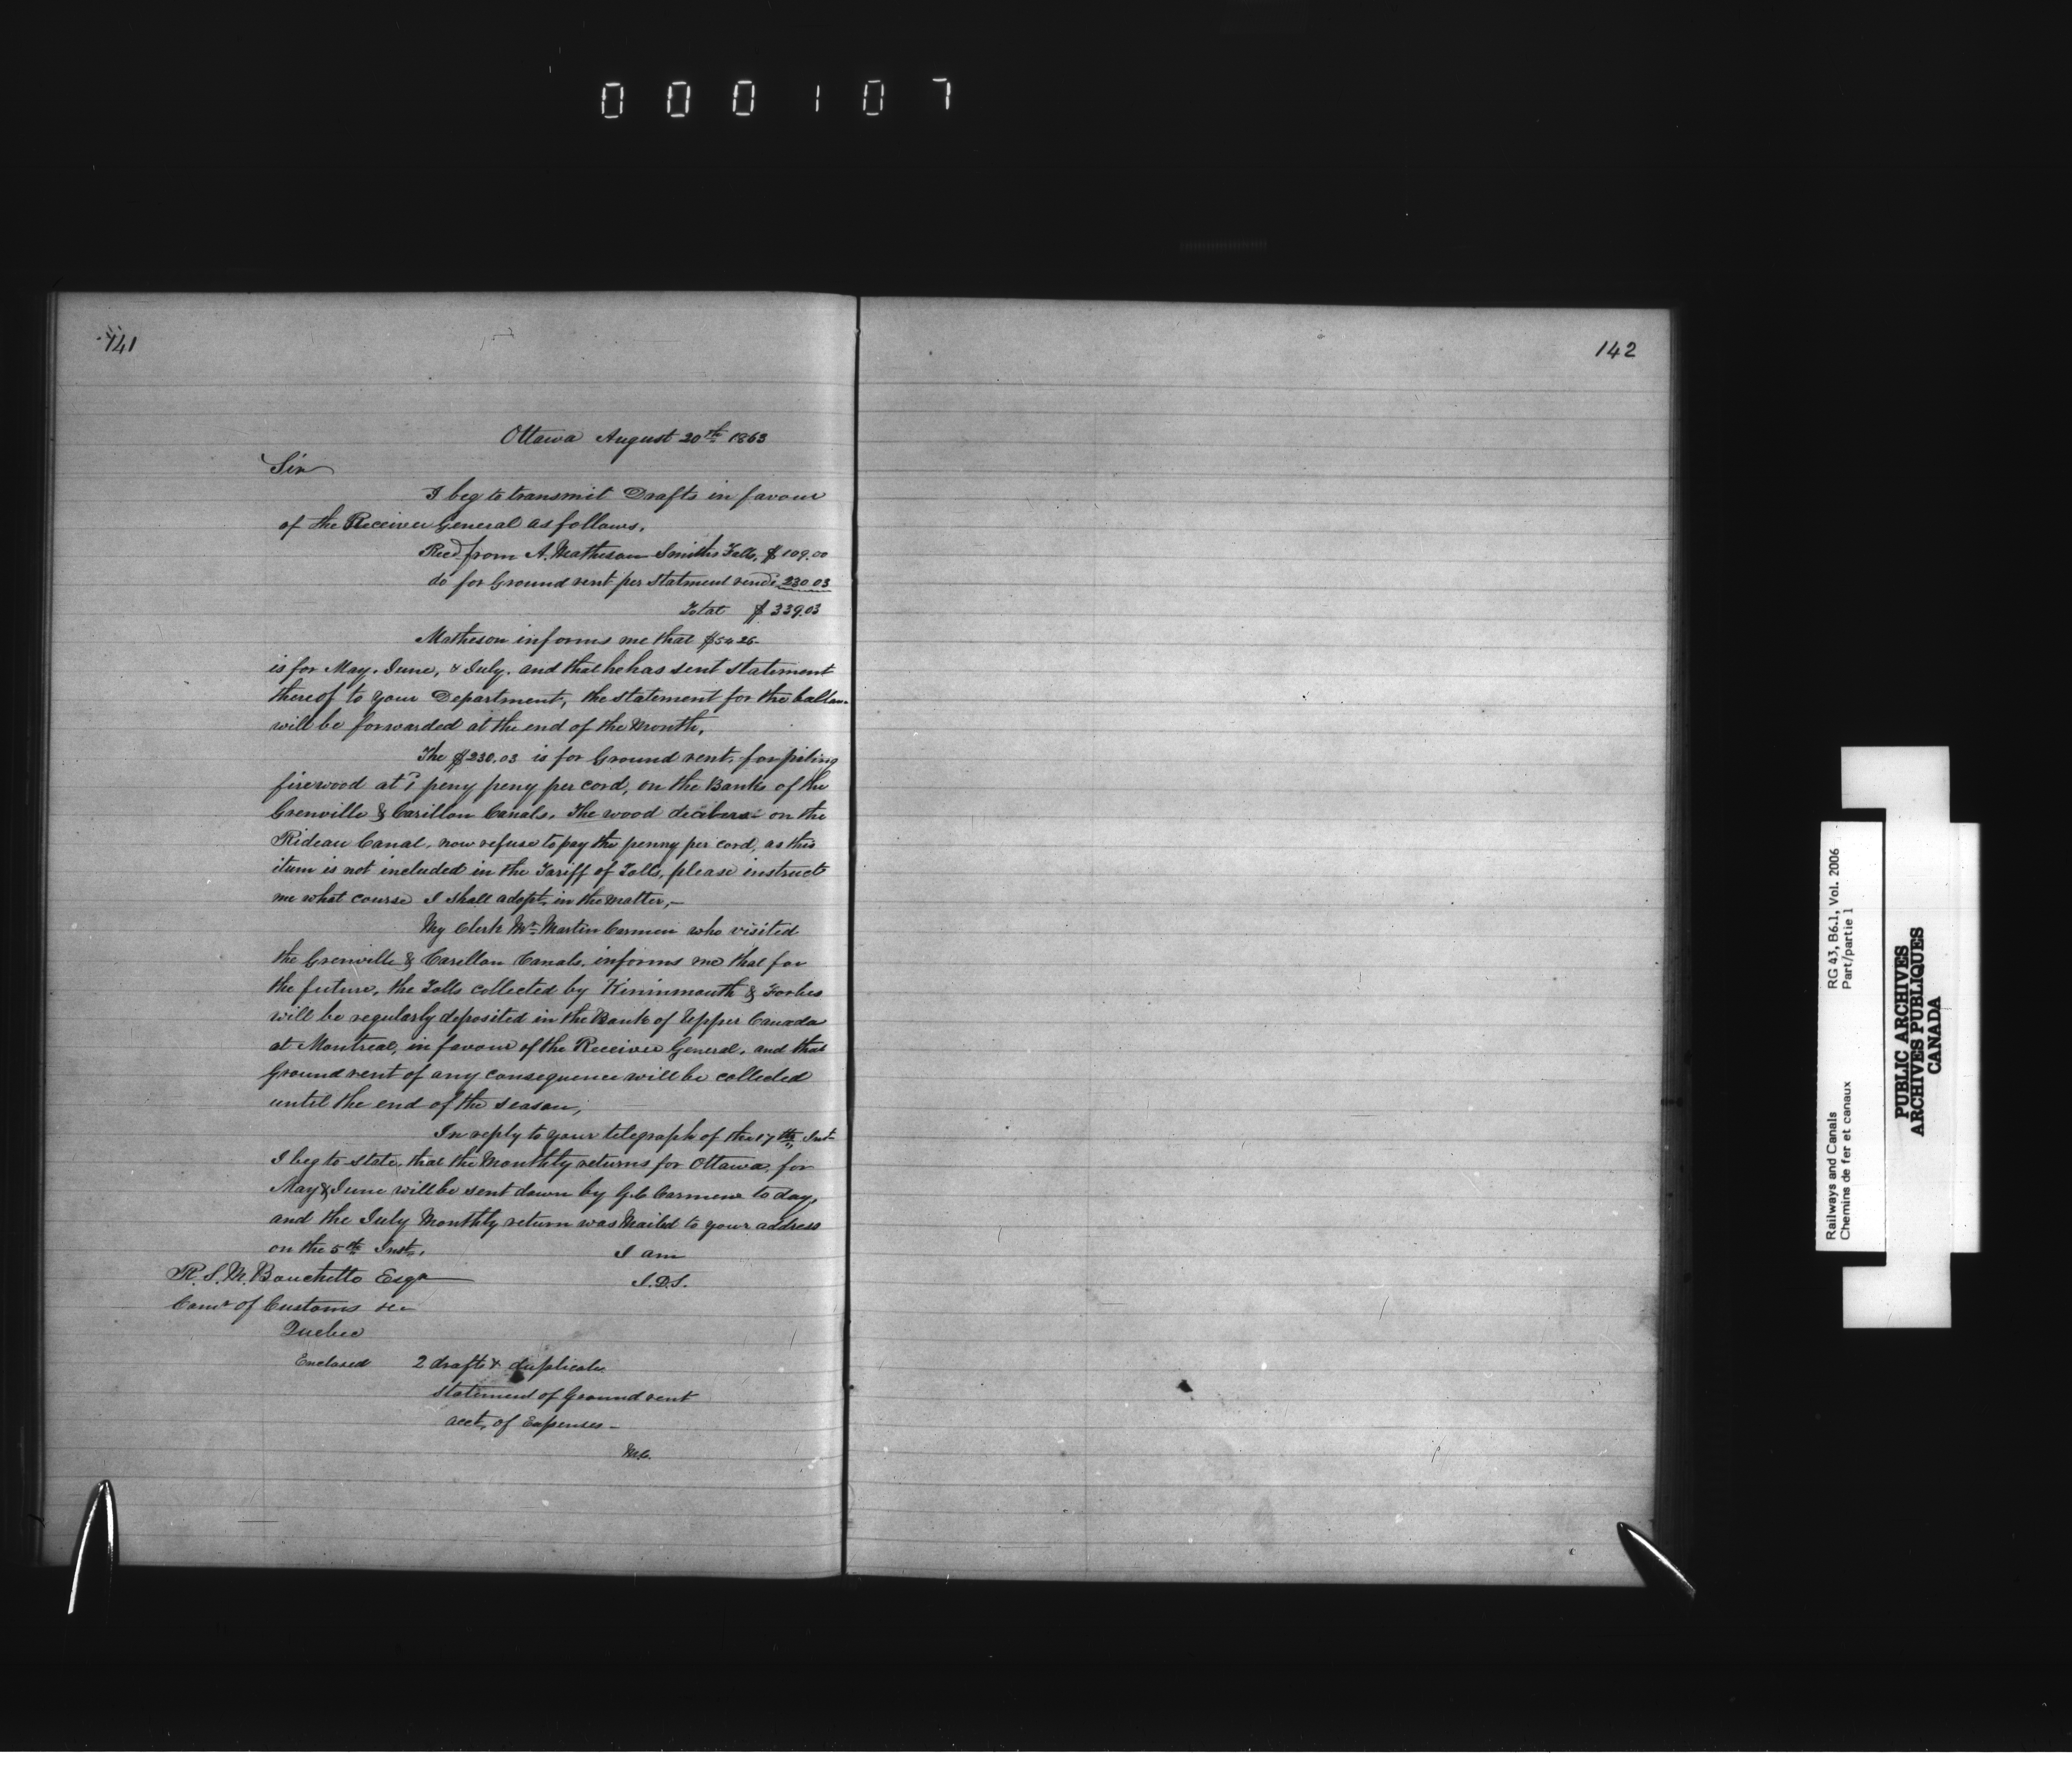 000107
141
Ottawa August 20th 1863
Sir
I beg to transmit Drafts in favour
of the Receiver General as follows,
Recd from A. Matheson Smiths Falls, $109.00
do for Ground rent per statment rend 230.03
Total $339.03
Matheson informs me that $54 26
is for May, June, & July, and that he has sent statement
thereof to your Department, the statement for the
will be forwarded at the end of the Month,
The $230.03 is for Ground rent, for piling
firewood at 1 peny peny per cord, on the Banks of the
Grenville & Carillon Canals, The wood on the
Rideau Canal, now refuse to pay the penny per cord, as this
item is not included in the Tariff of Tolls, please instruct
me what course I shall adopt, in the matter,—
My Clerk Mr Martin Carmen who visited
the Grenville & Carillon Canals, informs me that for
the future, the Tolls collected by Kininmouth & Forbes
will be regularly deposited in the Bank of Upper Canada
at Montreal, in favour of the Receiver General, and that
Ground rent of any consequence will be collected
until the end of the season,
In reply to your telegraph of the 17th Inst
I beg to state, that the Monthly returns for Ottawa, for
May & June will be sent down by G.C Carmen to day,
and the July Monthly return was Mailed to your address
on the 5th Inst,
I am
J.D.S.
R.S.M. Bouchette Esqr
Comr of Customs &c
Quebec
Enclosed 2 drafts & duplicate
statement of Ground rent
acct, of Expenses—
M.C.
142
Railways and Canals RG 43, B6.1, Vol. 2006
Chemins de fer et canaux Part/partie 1
PUBLIC ARCHIVES
ARCHIVES PUBLIQUES
CANADA